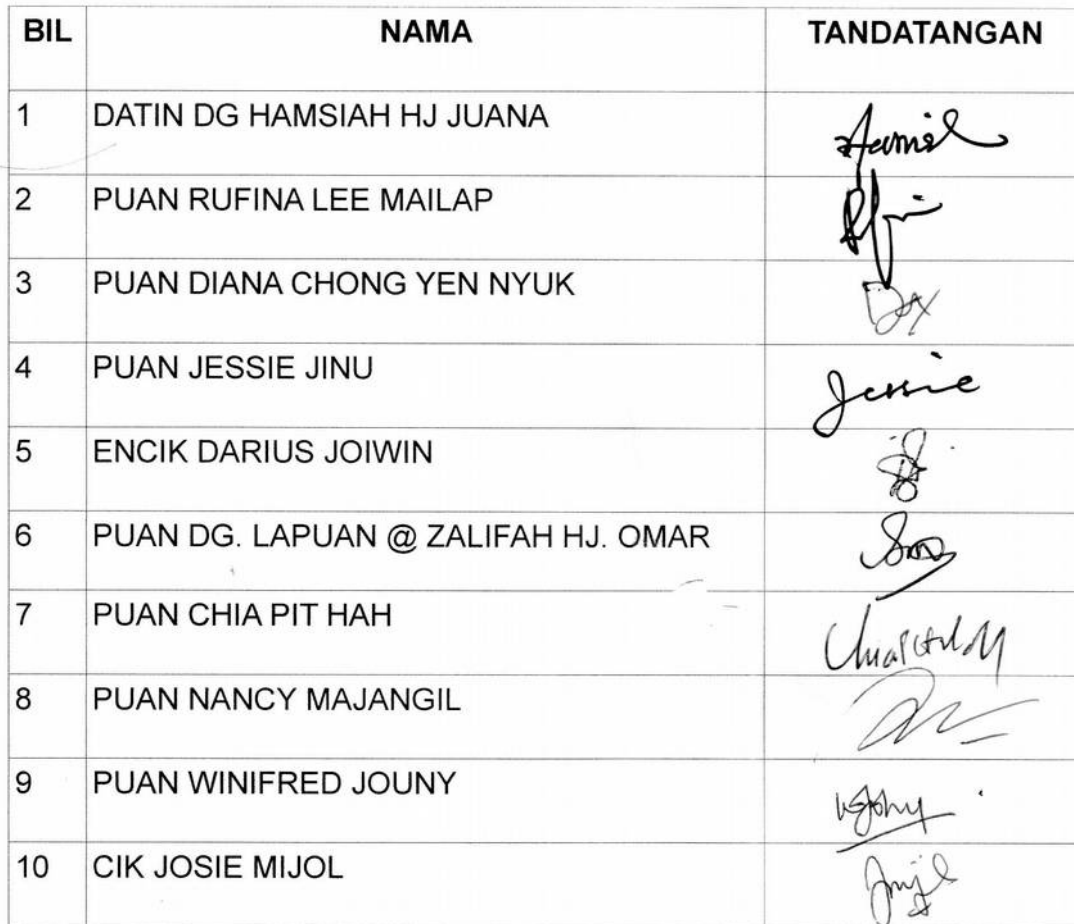 BIL NAMA TANDATANGAN
1 DATIN DG HAMSIAH HJ JUANA
2 PUAN RUFINA LEE MAILAP
3 PUAN DIANA CHONG YEN NYUK
4 PUAN JESSIE JINU Jessie
5 ENCIK DARIUS JOIWIN
6 PUAN DG. LAPUAN @ ZALIFAH HJ. OMAR
7 PUAN CHIA PIT HAH
8 PUAN NANCY MAJANGIL
9 PUAN WINIFRED JOUNY
10 CIK JOSIE MIJOL